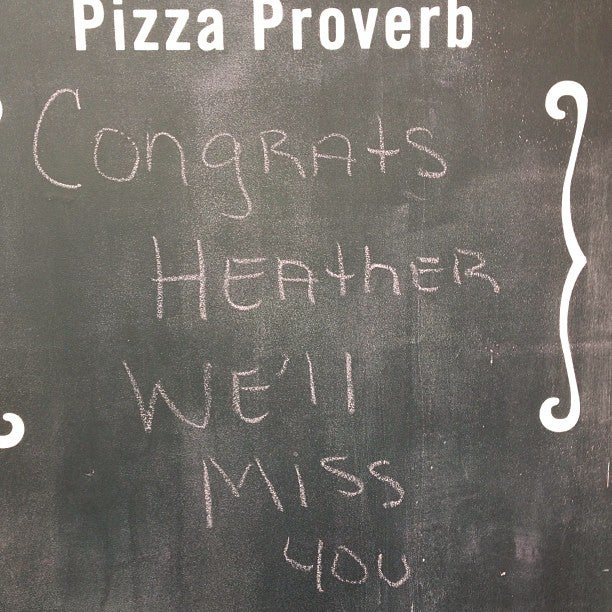 Pizza Proverb
Congrats
Heather
We'll
Miss
you